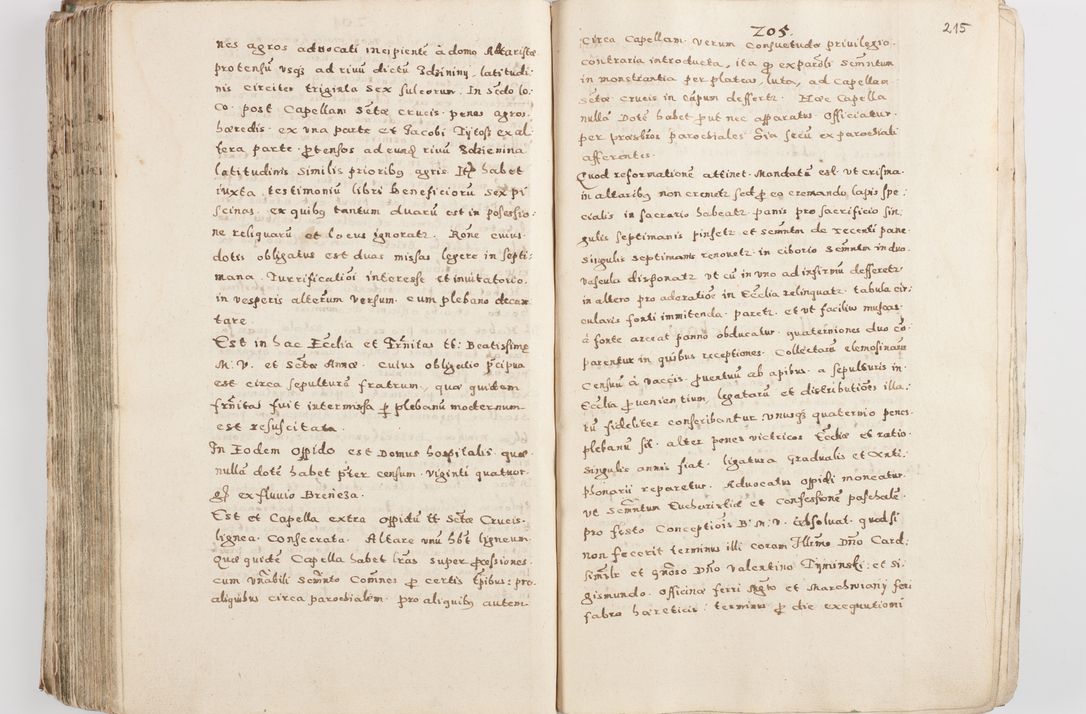 nes agros advocati incipiente à domo Altaristæ
protensũ usqȝ ad rivũ dictũ Zdzininy, latitudi:
nis circiter triginta sex sulcorum. In Scdo lo:
co post Capellam Sctæ crucis penes agros
hæredis ex una parte et Jacobi Tytoss ex al:
tera parte ꝓtensos ad eundȝ rivũ Zdzienina
latitudinis similis prioribȝ agris Itȩ habet
iuxta testimoniũ libri beneficiorũ sex pi
scinas ex quibȝ tantum duarũ est in posessio:
ne reliquarũ et locus ignoratr. Rõne cuius
dotis obligatus est duas missas legere in septi:
mana. Turrificatiõi interesse et invitatorio
in vesperis alterum versum cum plebano decan
tare
Est in hac Ecclia et Frñitas tt: Beatissimę
M: V. et Sctæ Annæ. cuius obligatio p̃cipua
est circa sepulturã fratrum, quæ quidem
frñitas fuit intermissa ꝑ plebanũ modernum
est resuscitata.
In Eodem Oppido est Domus hospitalis quæ
nullã dotẽ habet p̃ter censum viginti quatuor
gr ex fluvio Brenicza.
Est et Capella extra oppidũ tt Sctæ Crucis
lignea. Consecrata. Altare unũ hbt ligneum
Quæ quidẽ Capella habet lr̃as super ꝓcesiones
cum Vñabili Scrmnto Com̃nes ꝑ certis tp̃ibus: pro
aliquibus circa parochialem pro aliquibȝ autem
205. 215
Circa Capellam verum Consuetudo privilegio
contraria introducta, ita ꝙ ex parõli Scrmntum
in monstrantia per plateas, luta, ad Capellam
Sctæ crucis in cãpum deffertr. Hæc Capella
nullã Dotẽ habet ꝓut nec apparatus. Officiatur
per Præsbros parochiales Sia secũ ex parochiali
afferentes.
Quod reformationẽ attinet. Mandatũ est. ut crisma
in altaribȝ non cremetr sed ꝓ eo cremando lapis spe:
cialis in sacrario habeatr. panis pro sacrificio sin:
gulis septimanis pinsetr et scrmntm de recenti pane
singulis septimanis renovetr in ciborio scrmntm in duo
vascula disponatr ut cũ in uno ad infirmũ defferetr
in altero pro adoratiõe in Ecclia relinquatr tabula cir:
cularis fonti immitenda paretr et ut facilius muscas
à fonte arceat panno obducatur. quaterniones duo cõ
parentur in quibus receptiones. Collectarũ elemosinarũ
Censuũ à vaccis. ꝓventuũ ab apibus. a sepulturis in
Ecclia ꝓvenientium, legatarũ et distributiões illa:
rũ fideliter conscribantur unusqȝ quaternio penes
plebanũ sit. alter penes victricos Eccliæ et ratio
singulis annis fiat. ligatura Gradualis et Anti:
phonarii reparetur. Advocatus oppidi moneatur
ut Scrmntum Eucharistiæ et Confessionẽ paschalẽ
pro festo Conceptiõis B: M: V. absolvat. quod si
non fecerit terminus illi coram Illrmo Dño Card:
similr et gnõso Dño Valentino Tyminski et Si:
gismundo officinæ ferri Mgro et Marchwiany feri
fabro hæreticis: terminus ꝓ die exequutioni